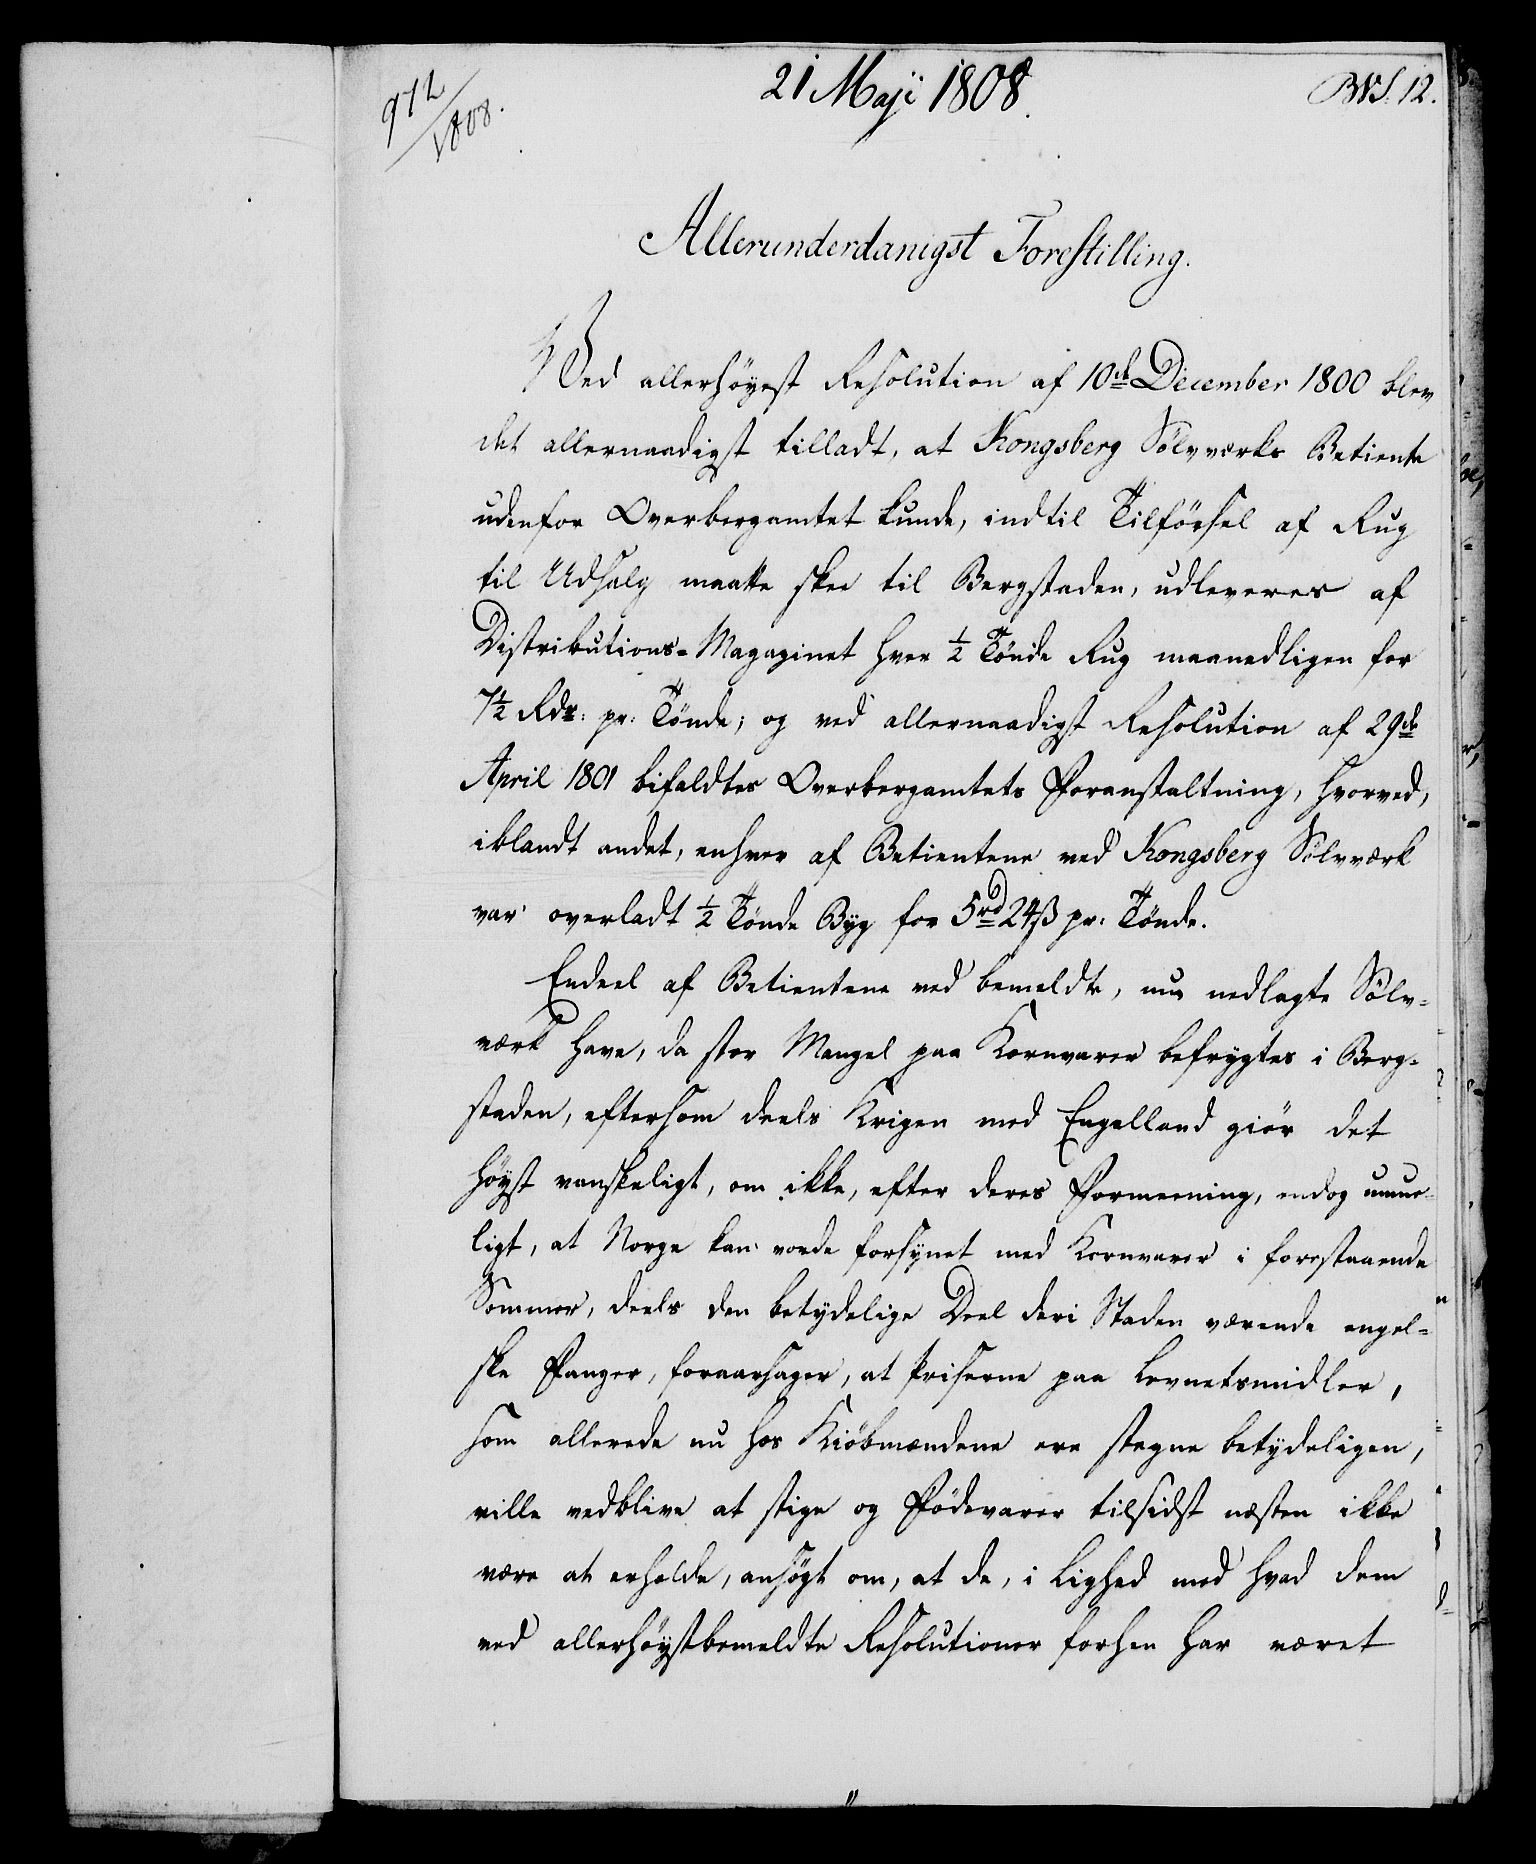 972/1808.
21 Maji 1808.
BVS: 12.
Allerunderdanigst Forestilling.
Ved allerhöyest Resolution af 10de December 1800 blev
det allernaadigst tilladt, at Kongsberg Sölvværks Betiente
udenfor Overbergamtet kunde, indtil Tilförsel af Rug
til Udsalg maatte skee til Bergstaden, udleveres af
Distributions-Magazinet hver ½ Tönde Rug maanedligen for
7½ Rdr: pr: Tönde; og ved allernaadigst Resolution af 29de
April 1801 bifaldtes Overbergamtets Foranstaltning, hvorved,
iblandt andet, enhver af Betientene ved Kongsberg Sölvværk
var overladt ½ Tönde Byg for 5rd 24ß pr: Tönde.
Endeel af Betientene ved bemeldte, nu nedlagte Sölv-
værk have, da stor Mangel paa Kornvarer befrygtes i Berg-
staden, eftersom deels Krigen med Engelland giör det
höyst vanskeligt, om ikke, efter deres Formeening, endog umue-
ligt, at Norge kan vorde forsynet med Kornvarer i forestaaende
Sommer, deels den betydelige Deel der i Staden værende engel-
ske Fanger, foraarsager, at Priserne paa Levnetsmidler,
som allerede nu hos Kiöbmændene ere stegne betydeligen,
ville vedblive at stige og Födevarer tilsidst næsten ikke
være at erholde, ansögt om, at de, i Lighed med hvad dem
ved allerhöystbemeldte Resolutioner forhen har været